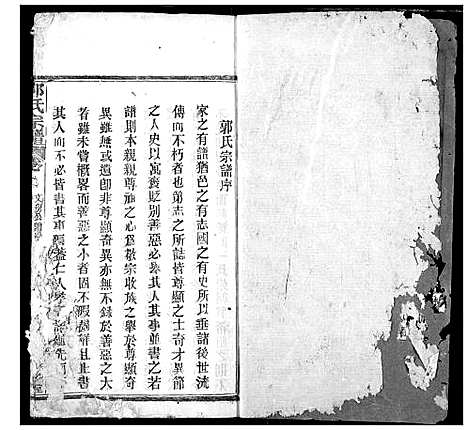 郭氏宗譜序
家之有譜猶邑之有志國之有史所以垂諸後世流
傳而不朽者也第志之所誌皆尊顯之士奇才異節
之人史以寓褒貶別善惡必舉其人其事並書之若
譜則本親親尊祖之心為敬宗收族之舉於尊顯奇
異雖無或遺卽非尊顯奇異亦不使其或缺於善惡之大
者雖未嘗概畧而善惡之小者固不暇錄并且止書
其人而不必皆書其事
仁人孝
氏宗譜